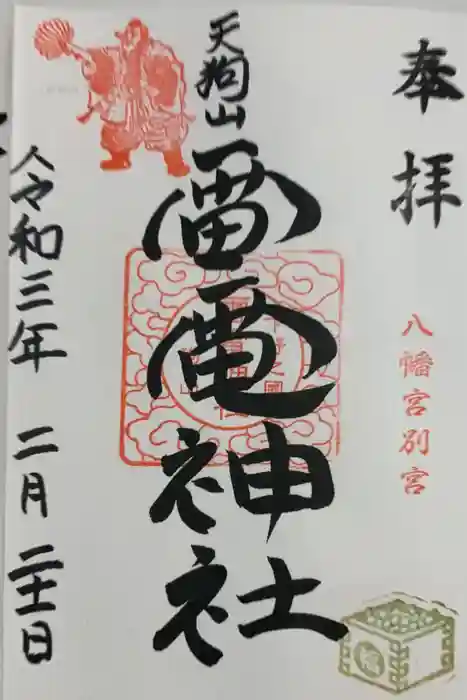 奉拝
八幡宮別宮
天狗山
雷電神社
令和三年 二月 二十日